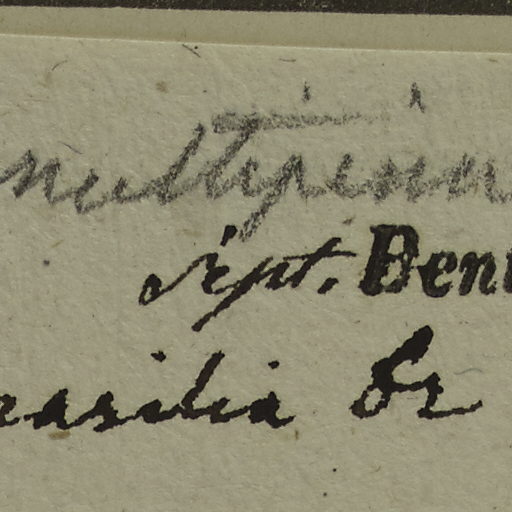 multipinn
sept. Dent
rasilia Or